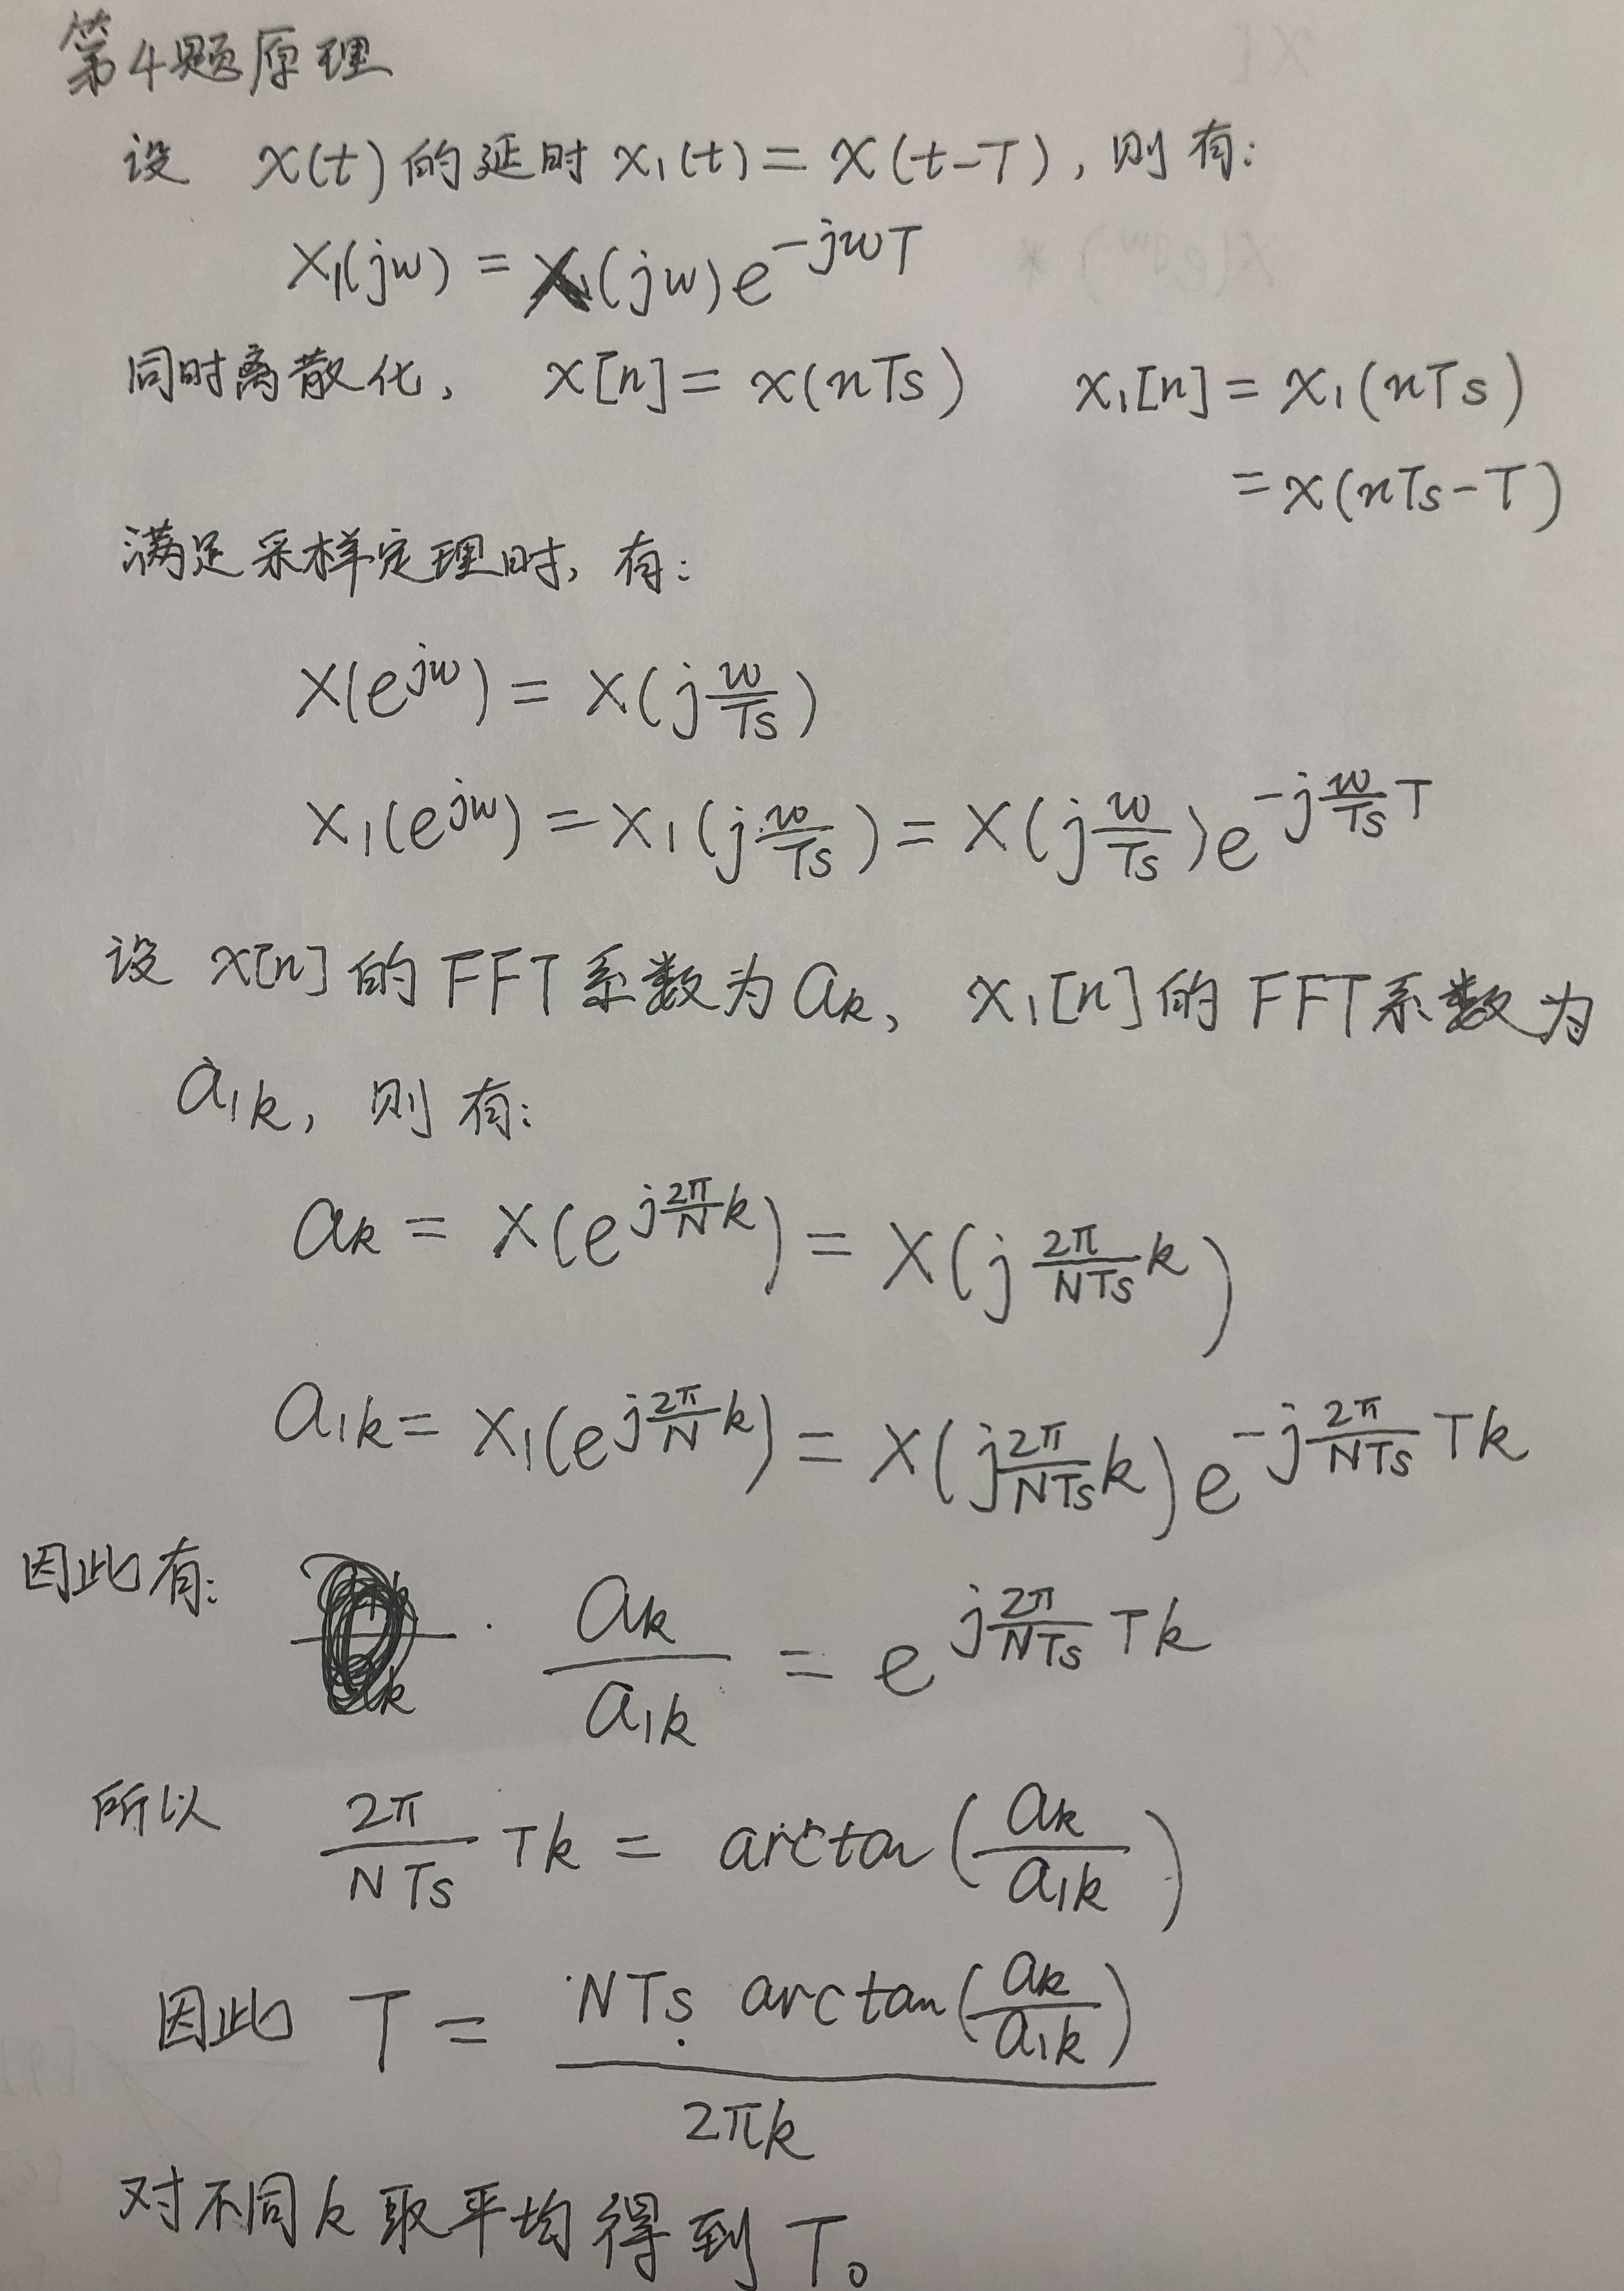 第4题原理
设 x(t)的延时 x₁(t)=x(t-T),则有:
X₁(jw) = X(jw)e^{-jwT}
同时离散化, x[n]=x(nTs) x₁[n]=x₁(nTs)
=x(nTs-T)
满足采样定理时,有:
X(e^{jw}) = X(j\frac{w}{Ts})
X₁(e^{jw}) = X₁(j\frac{w}{Ts}) = X(j\frac{w}{Ts})e^{-j\frac{w}{Ts}T}
设 x[n]的FFT系数为a_k, x₁[n]的FFT系数为
a_{1k}, 则有:
a_k = X(e^{j\frac{2π}{N}k}) = X(j\frac{2π}{NTs}k)
a_{1k} = X₁(e^{j\frac{2π}{N}k}) = X(j\frac{2π}{NTs}k)e^{-j\frac{2π}{NTs}Tk}
因此有: \frac{a_k}{a_{1k}} = e^{j\frac{2π}{NTs}Tk}
所以 \frac{2π}{NTs}Tk = arctan(\frac{a_k}{a_{1k}})
因此 T = \frac{NTs arctan(\frac{a_k}{a_{1k}})}{2πk}
对不同k取平均得到T。